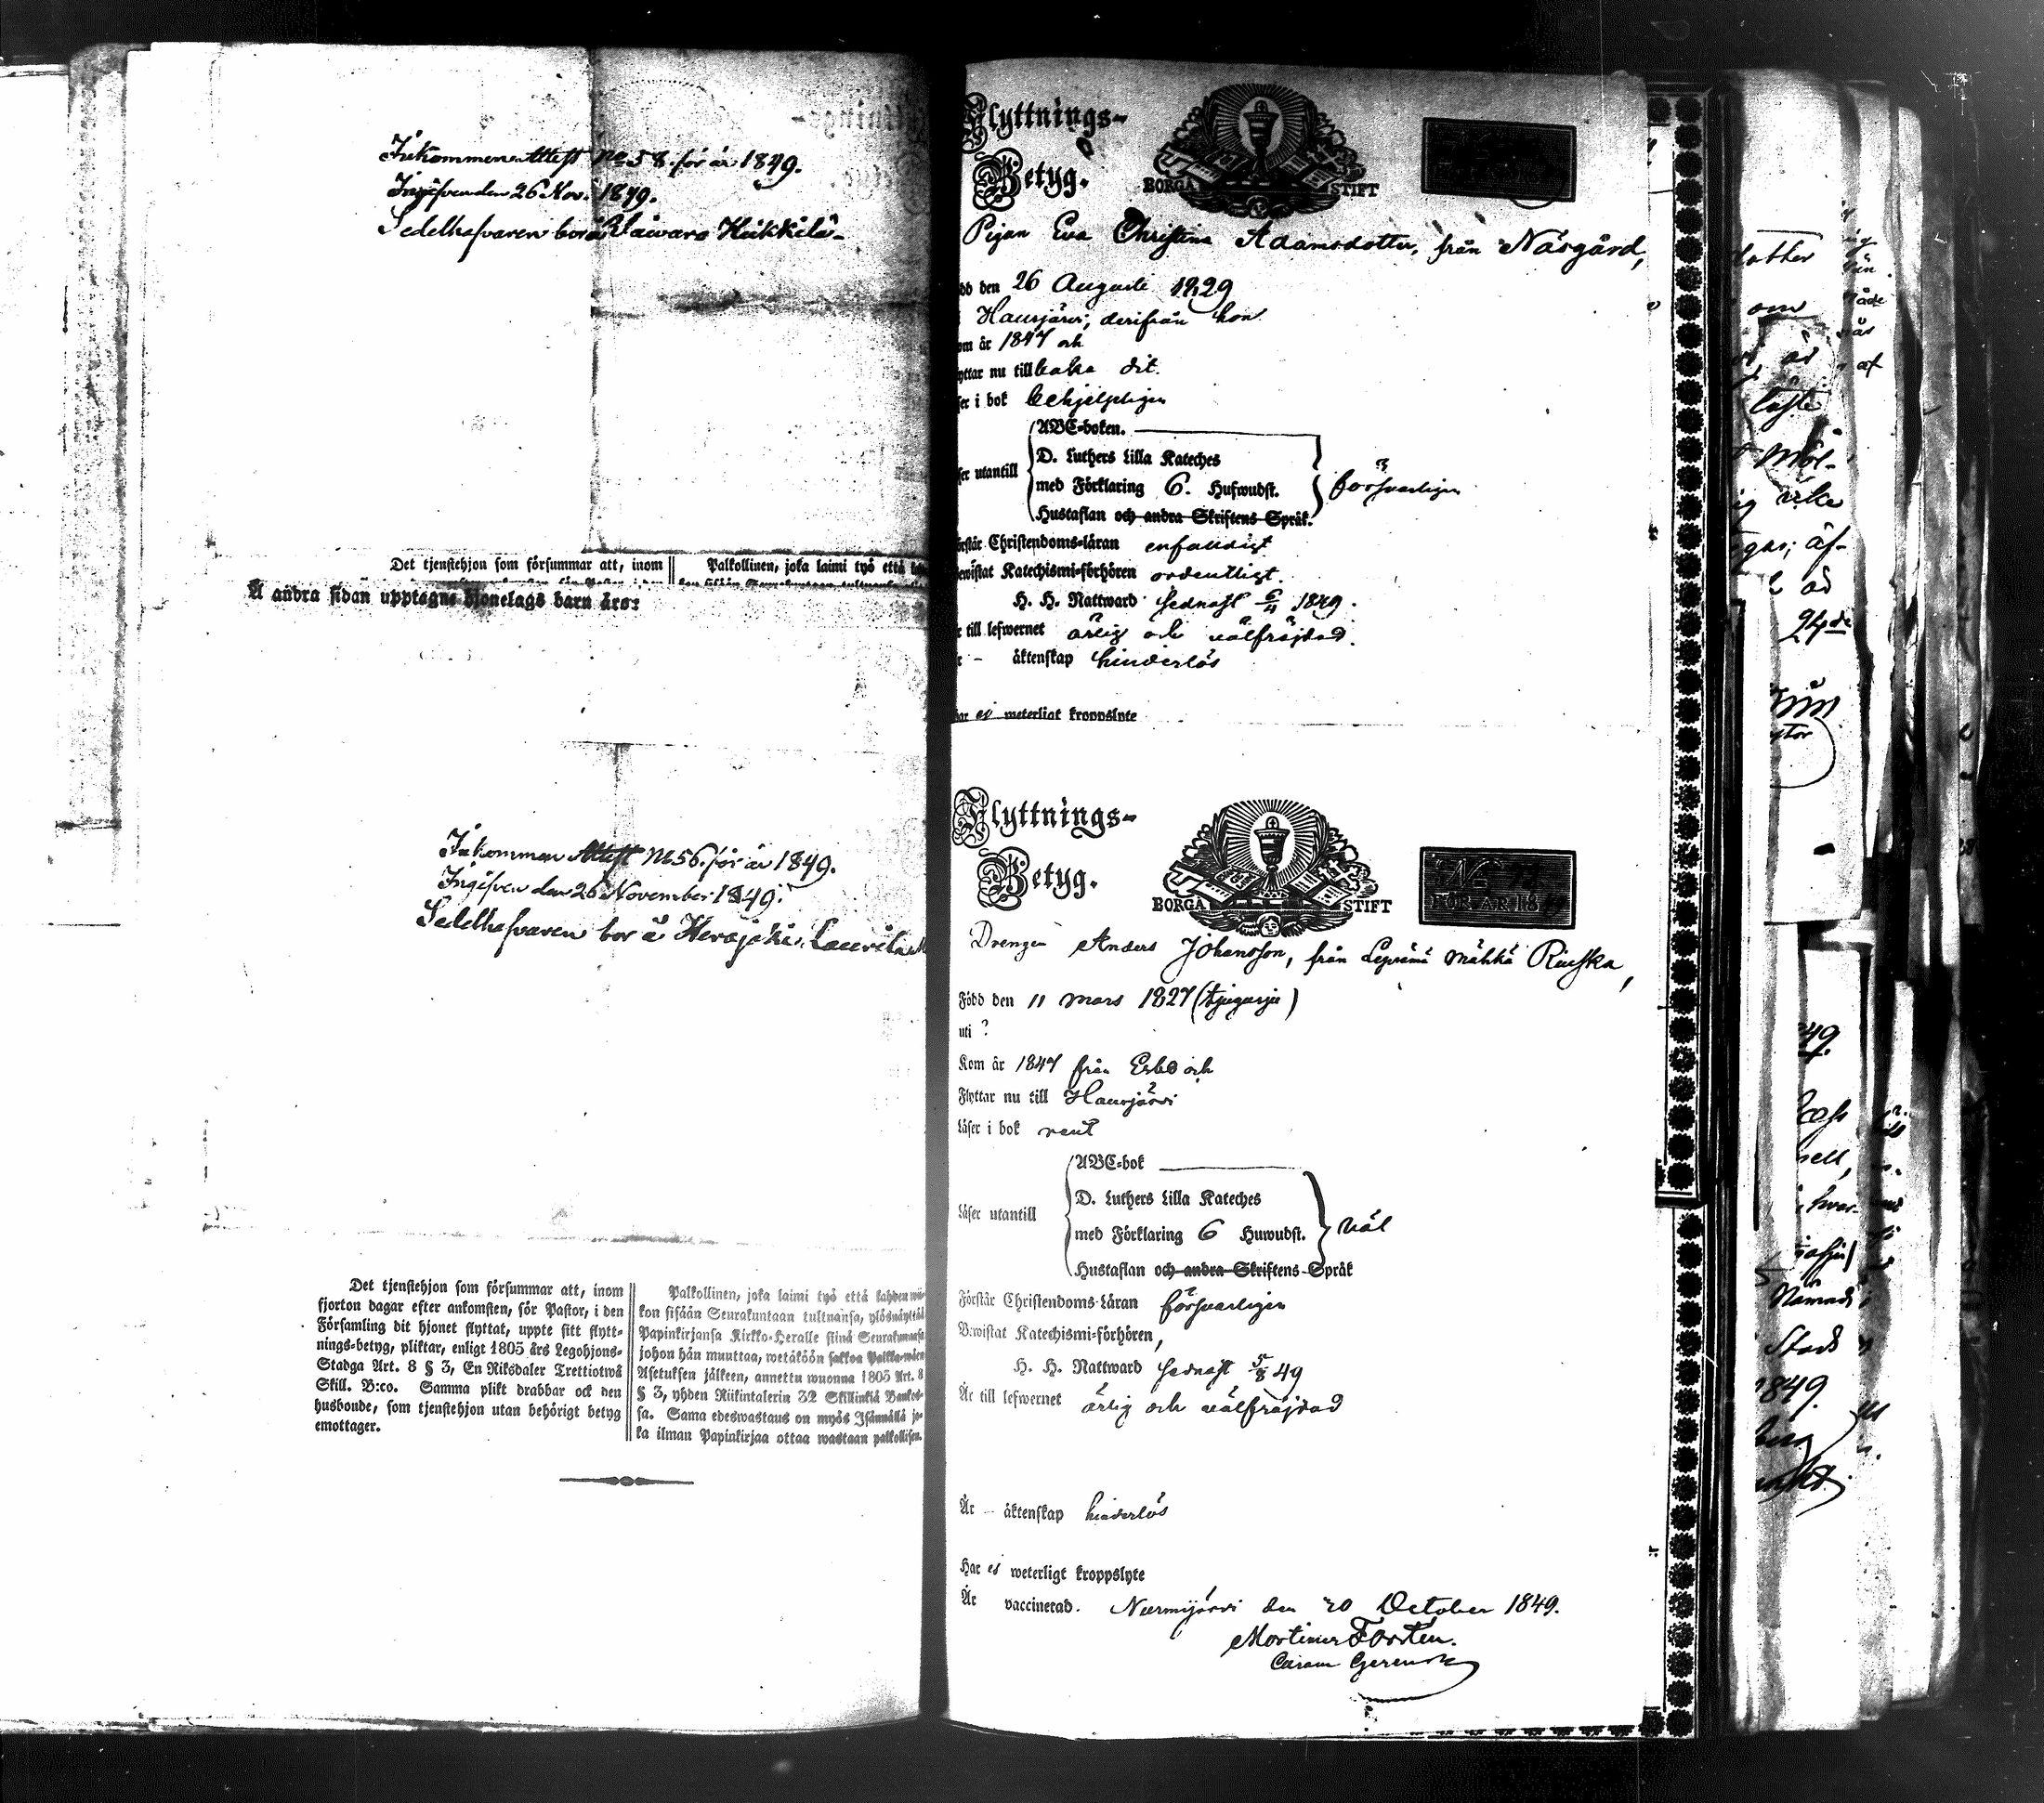 Inkommen Attest No 58. för år 1849.
Ingifven den 26 Nov. 1849.
Sedelhafvaren bor å Waiwaro Heikkilä.
Det tjenstehjon som försummar att, inom
Palkollinen, joka laimi lyö että
Å andra sidan upptagne hjonelags barn äro:
Inkommen Attest No 56. för år 1849.
Ingifven den 26 November 1849.
Sedelhafvaren bor å Herajoki Laurila
Det tjenstehjon som försummar att, inom
fjorton dagar efter ankomsten, för Pastor, i den
Församling dit hjonet flyttat, uppte sitt flytt-
nings-betyg, pliktar, enligt 1805 års Legohjons-
Stadga Art. 8 § 3, En Riksdaler Trettiotwå
Skill. B:co. Samma plikt drabbar ock den
husbonde, som tjenstehjon utan behörigt betyg
emottager.
Palkollinen, joka laimi lyö että kahden wii-
kon sisään Seurakuntaan tultuansa, ylösnäyttää
Papinkirjansa Kirkko-Heralle siinä Seurakunnassa
johon hän muuttaa, wetäköön sakkoa Palkka-wäen
Asetuksen jälkeen, annettu wuonna 1805 Art. 8
§ 3, yhden Riikintalerin 32 Skillinkiä Bankos-
sa. Sama edeswastaus on myös Isännällä jo-
ka ilman Papinkirjaa ottaa wastaan palkollisen.
Flyttnings-
Betyg.
BORGÅ STIFT
Pigan Eva Christina Adamsdotter, från Näsgård,
den 26 Augusti 1829
Hausjärvi, derifrån hon
om år 1847 och
yttar nu till baka dit.
ser i bok behjelpligen
ABC-boken.
D. Luthers Lilla Kateches
ser utantill
med Förklaring 6. Hufwudst.
försvarligen
Hustaflan och andra Skriftens Språk.
örstår Christendoms-läran enfaldigt
ewistat Katechismi-förhören ordentligt.
H. H. Nattward sednast 6/11 1849.
r till lefwernet ärlig och välfräjdad.
r – äktenskap hinderlös
ar ej weterligt kroppslyte
Flyttnings-
Betyg.
BORGÅ STIFT
No
FÖR ÅR 18
Drengen Anders Johansson, från Lepsämä Mähkä Ruska,
Född den 11 Mars 1827 (tjugusju)
uti ?
Kom år 1847 från Esbo och
Flyttar nu till Hausjärvi
Läser i bok rent
ABC-bok
D. Luthers Lilla Kateches
Läser utantill
med Förklaring 6 Huwudst.
väl
Hustaflan och andra Skriftens Språk
Förstår Christendoms-Läran försvarligen
Bewistat Katechismi-förhören,
H. H. Nattward sednast 5/8 49
Är till lefwernet ärlig och välfräjdad
Är – äktenskap hinderlös
Har ej weterligt kroppslyte
Är vaccinerad. Nurmijärvi den 20 October 1849.